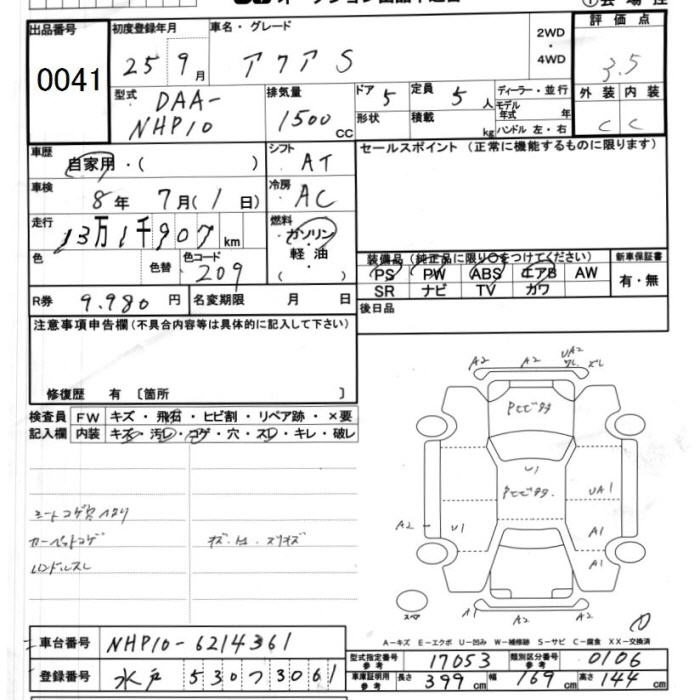 出品番号 初度登録年月 車名・グレード 2WD ・ 4WD 評価点
0041 25年 9月 アクア S 3.5
型式 DAA-NHP10 排気量 1500 CC ドア 5 定員 5 人 ディーラー・並行 外装 内装
形状 積載 kg モデル年式 年 ハンドル 左・右 C C
車歴 自家用・( ) シフト AT セールスポイント (正常に機能するものに限ります)
車検 8年 7月(1日) 冷房 AC
走行 13万1千907 km 燃料 ガソリン ・ 軽油 ( ・ )
色 色替 色コード 209
装備品 (純正品に限り○をつけてください) 新車保証書
PS PW ABS エアB AW 有・無
SR ナビ TV カワ
R券 9.980円 名変期限 月 日 後日品
注意事項申告欄 (不具合内容等は具体的に記入して下さい)
修復歴 有 〔箇所 〕
検査員 FW キズ・飛石・ヒビ割・リペア跡・×要
記入欄 内装 キズ・汚レ・コゲ・穴・スレ・キレ・破レ
シートコゲ穴ヘタリ
カーペットコゲ
ハンドルスレ
A2 A2 UA2
U1
UA1
A2 U1 A1
A1
A1 A2 A2
スペア
A-キズ E-エクボ U-凹み W-補修跡 S-サビ C-腐食 XX-交換済
車台番号 NHP10-6214361
型式指定番号 参考 17053 類別区分番号 参考 0106
登録番号 水戸 530つ3061
車庫証明用 参考 長さ 399cm 幅 169cm 高さ 144cm